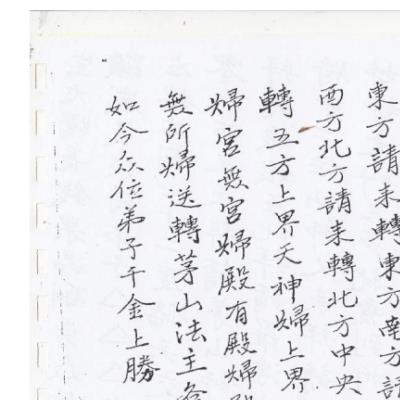 東方請来轉東方南方請
西方北方請来轉北方中央
轉五方上界天神歸上界
歸宮無宮歸殿有殿歸
無所歸送轉茅山法主
如今众位弟子千金上勝